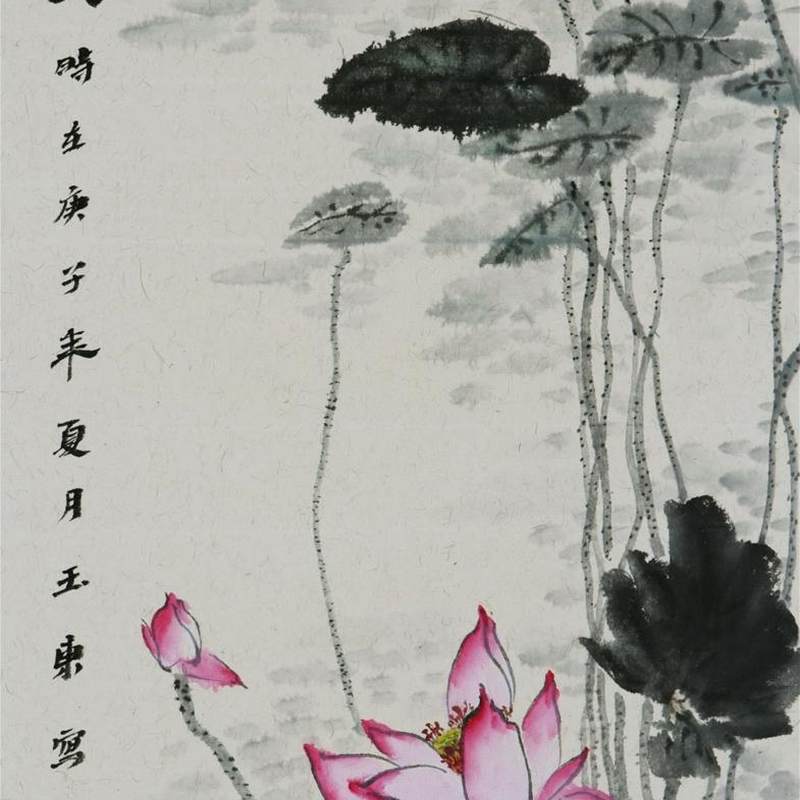 時在庚子年夏月玉東寫